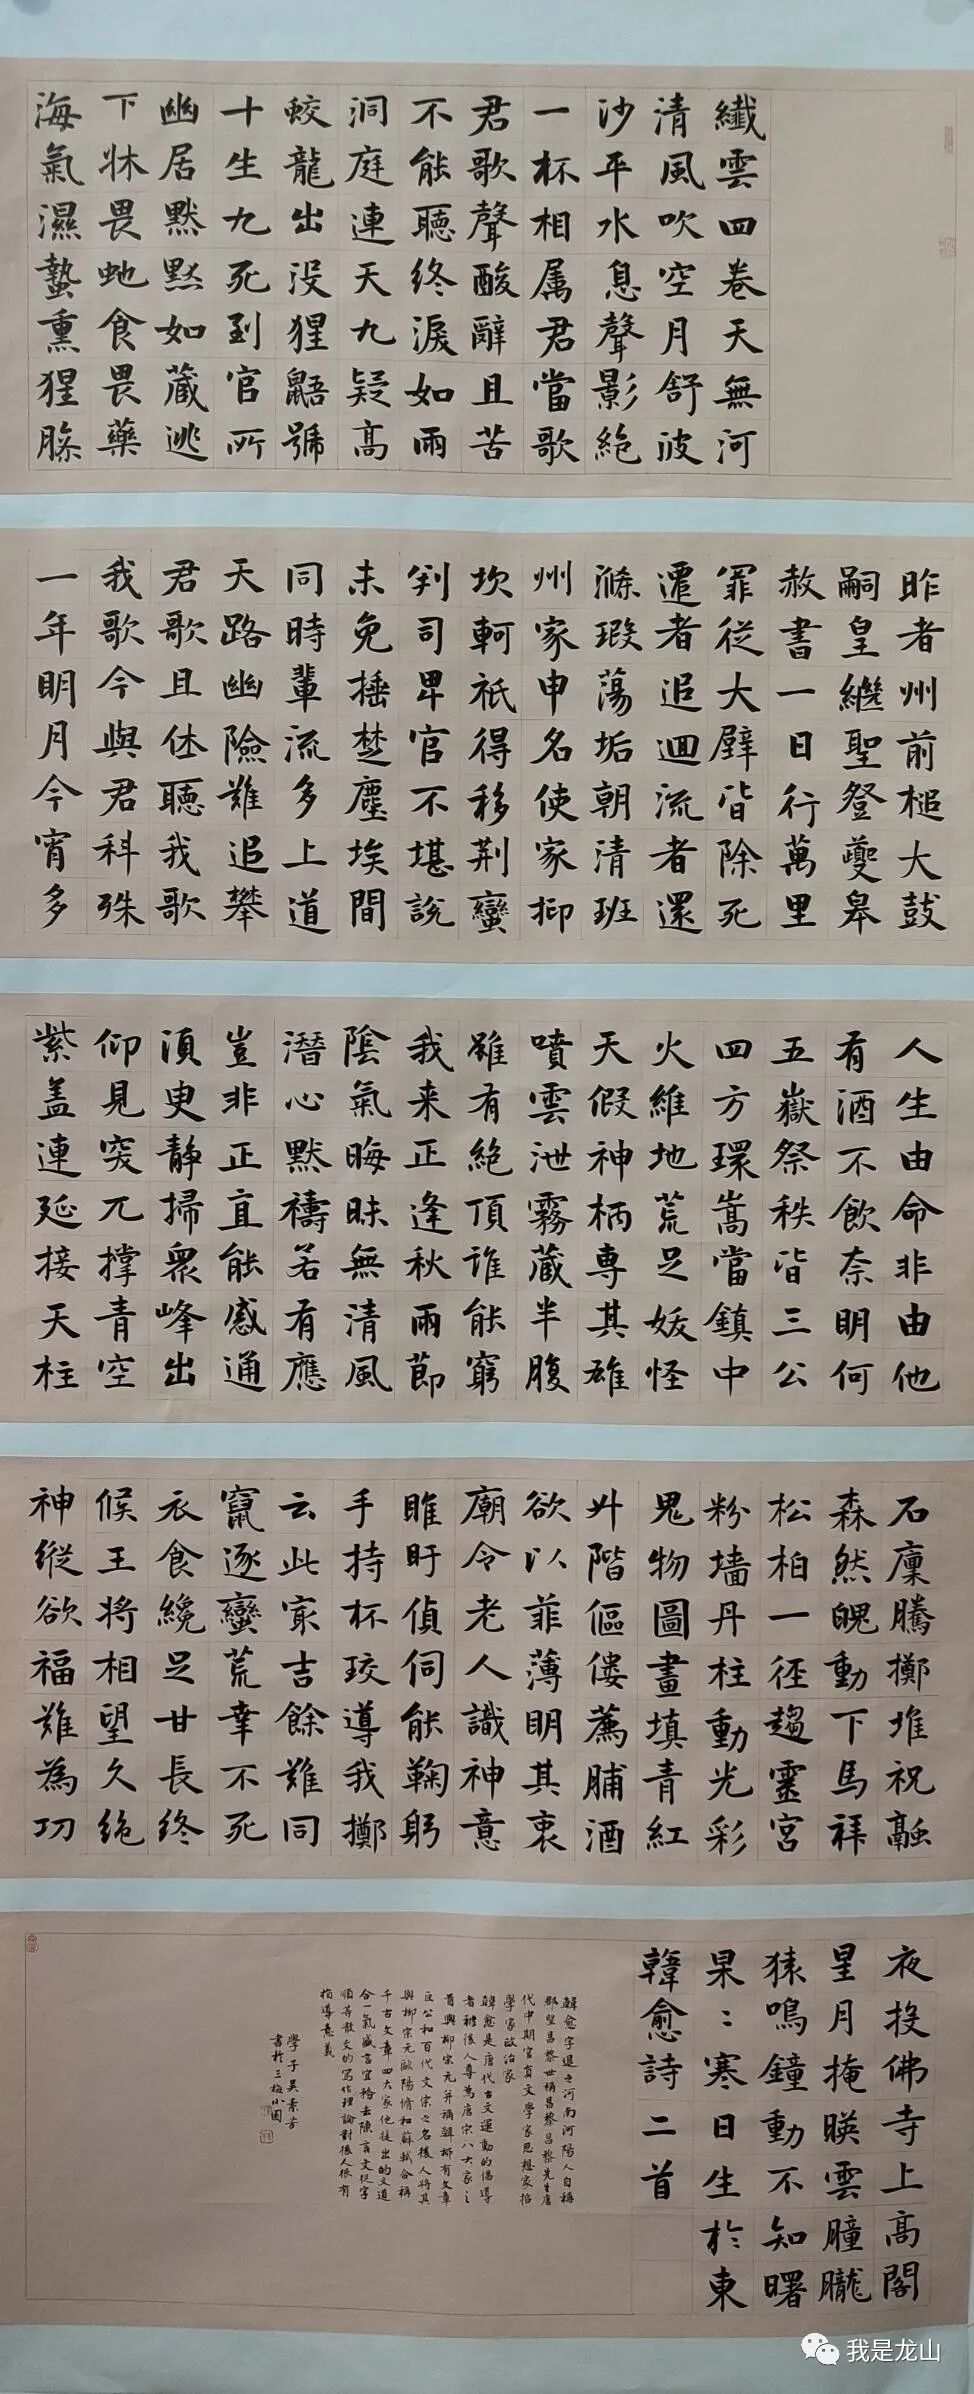 纖雲四卷天無河
清風吹空月舒波
沙平水息聲影絶
一杯相属君當歌
君歌聲酸辭且苦
不能聽終淚如雨
洞庭連天九疑高
蛟龍出没猩鼯號
十生九死到官所
幽居默默如蔵逃
下牀畏虵食畏藥
海氣濕蟄熏猩臊
昨者州前槌大鼓
嗣皇繼聖登夔皋
赦書一日行萬里
罪從大辟皆除死
遷者追迴流者還
滌瑕蕩垢朝清班
州家申名使家抑
坎軻祇得移荆蠻
判司卑官不堪說
未免捶楚塵埃間
同時輩流多上道
天路幽險難追攀
君歌且休聽我歌
我歌今與君科殊
一年明月今宵多
人生由命非由他
有酒不飲奈明何
五嶽祭秩皆三公
四方環嵩當鎮中
火維地荒足妖怪
天假神柄專其雄
噴雲泄霧蔵半腹
雖有絶頂谁能窮
我来正逢秋雨節
陰氣晦昧無清風
潛心默禱若有應
豈非正直能感通
湏臾静掃衆峰出
仰見突兀撑青空
紫盖連延接天柱
石廩騰擲堆祝融
森然魄動下馬拜
松柏一徑趨靈宮
粉墙丹柱動光彩
鬼物圖畫填青紅
升階傴僂薦脯酒
欲以菲薄明其衷
廟令老人識神意
睢盱偵伺能鞠躬
手持杯珓導我擲
云此㝡吉餘難同
竄逐蠻荒幸不死
衣食纔足甘長終
候王将相望久绝
神縱欲福難為功
夜投佛寺上高閣
星月掩暎雲膧朧
猿鳴鐘動不知曙
杲〻寒日生於東
韓愈詩二首
韓愈字退之河南河陽人自稱
郡望昌黎世稱昌黎昌黎先生唐
代中期官員文學家思想家哲
學家政治家
韓愈是唐代古文運動的倡導
者被後人尊為唐宋八大家之
首與柳宗元并稱韓柳有文章
巨公和百代文宗之名後人將其
與柳宗元歐陽脩和蘇軾合稱
千古文章四大家他提出的文道
合一氣盛言宜務去陳言文從字
順等散文的寫作理論對後人很有
指導意義
學子吴素芳
書於三槐小園
我是龙山